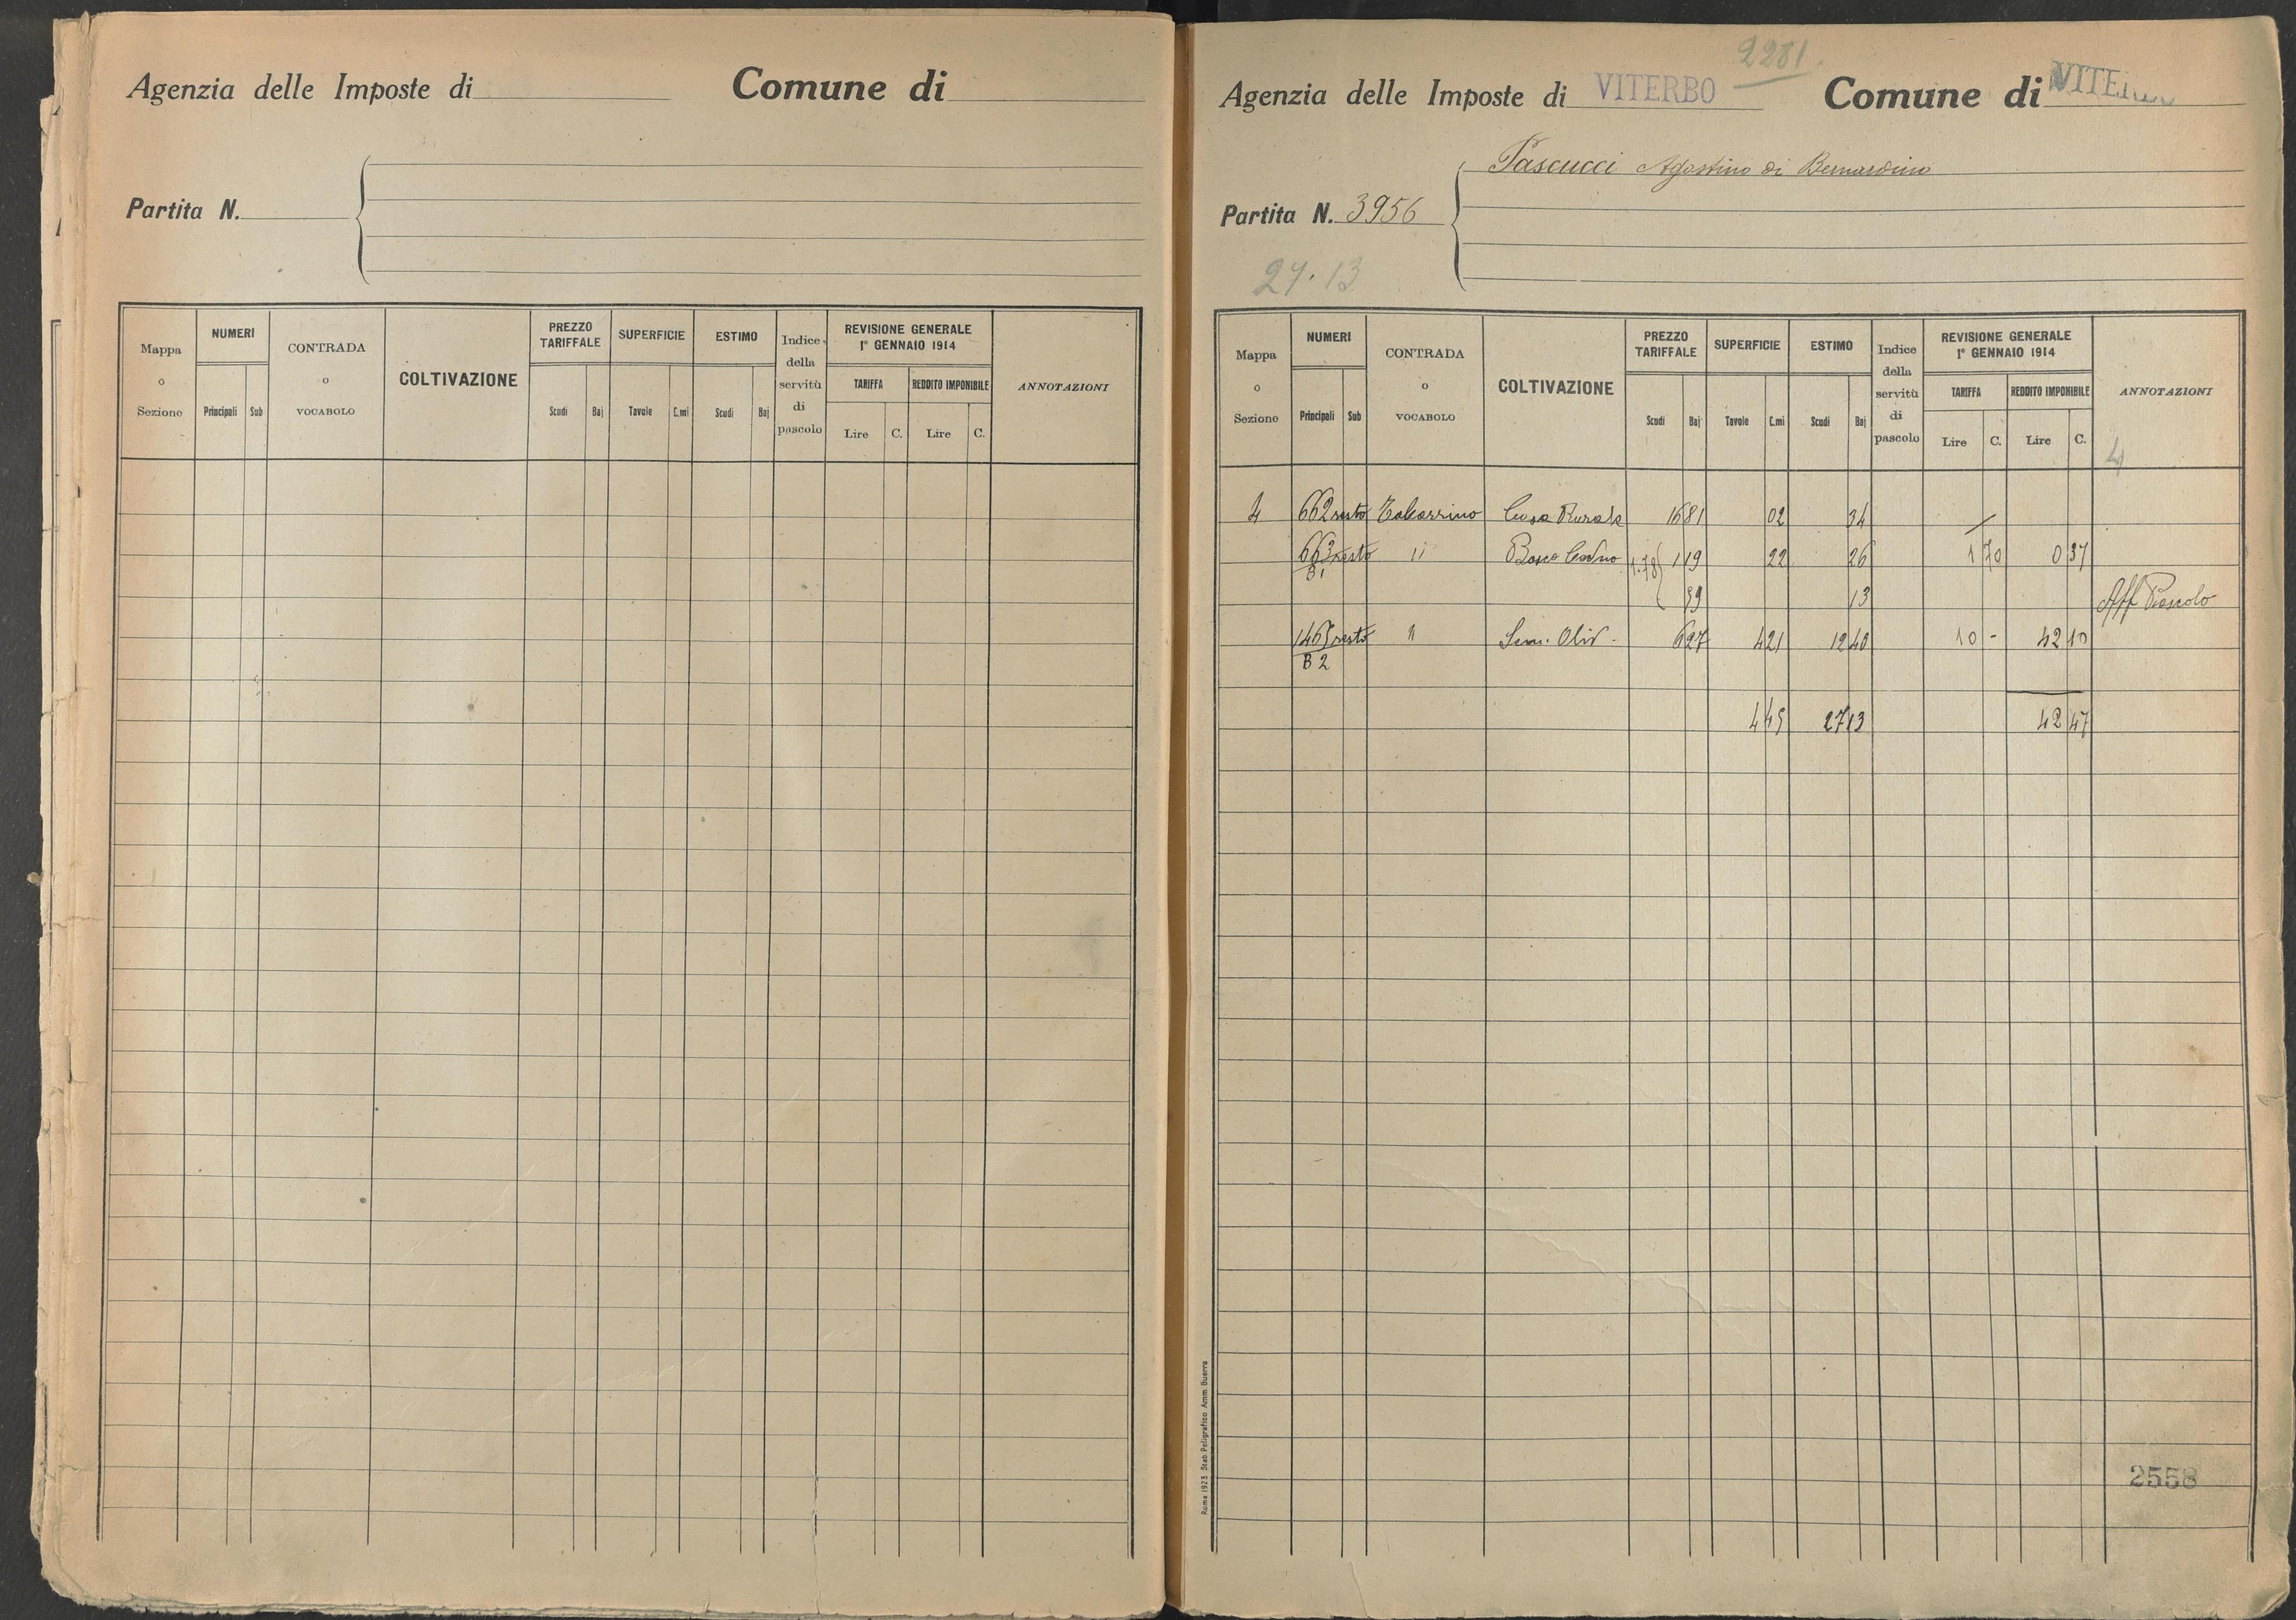 Agenzia delle Imposte di Comune di
Partita N.
Mappa o Sezione NUMERI Principali Sub CONTRADA o VOCABOLO COLTIVAZIONE PREZZO TARIFFALE Scudi Baj SUPERFICIE Tavole C.mi ESTIMO Scudi Baj Indice della servitù di pascolo REVISIONE GENERALE 1° GENNAIO 1914 TARIFFA Lire C. REDDITO IMPONIBILE Lire C. ANNOTAZIONI
2281
Agenzia delle Imposte di VITERBO Comune di VITERBO
Pascucci Agostino di Bernardino
Partita N. 3956
27.13
Mappa o Sezione NUMERI Principali Sub CONTRADA o VOCABOLO COLTIVAZIONE PREZZO TARIFFALE Scudi Baj SUPERFICIE Tavole C.mi ESTIMO Scudi Baj Indice della servitù di pascolo REVISIONE GENERALE 1° GENNAIO 1914 TARIFFA Lire C. REDDITO IMPONIBILE Lire C. ANNOTAZIONI
4
4 662 resto Casa Rurale 1681 02 34
663 resto 11 Bosco Ceduo 1.78 119 22 26 1 70 0 37
B1
59 13 Aff Pascolo
1465 resto 11 Sem. Oliv. 627 4 21 12 40 10 - 42 10
B 2
4 45 27 13 42 47
Roma 1923 Stab. Poligrafico Amm. Guerra
2558